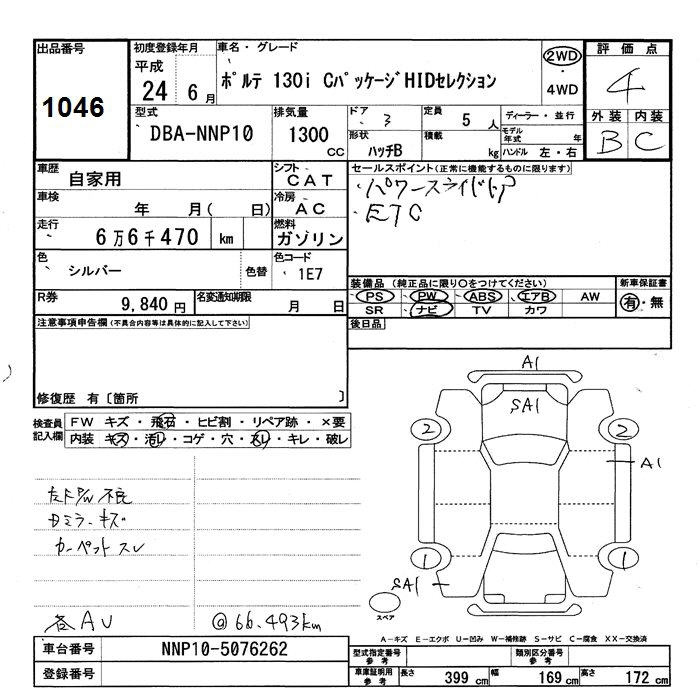 出品番号 初度登録年月 車名・グレード 評価点
1046 平成 24 6月 ポルテ 130i CパッケージHIDセレクション 2WD ・ 4WD 4
型式 排気量 ドア 3 定員 5人 ディーラー・並行 外装 内装
DBA-NNP10 1300 CC 形状 ハッチB 積載 kg モデル年式 年 ハンドル 左・右 B C
車歴 自家用 シフト CAT セールスポイント(正常に機能するものに限ります)
車検 年 月( 日) 冷房 AC ・パワースライドドア
走行 6万6千470 km 燃料 ガソリン ・ETC
色 シルバー 色替 色コード 1E7
R券 9,840円 名変通知期限 月 日
装備品(純正品に限り○をつけてください) 新車保証書
PS PW ABS エアB AW 有・無
SR ナビ TV カワ
注意事項申告欄(不具合内容等は具体的に記入して下さい) 後日品
修復歴 有〔箇所 〕
検査員記入欄 FW キズ・飛石・ヒビ割・リペア跡・×要
内装 キズ・汚レ・コゲ・穴・スレ・キレ・破レ
A1
SA1
2 2
A1
1 1
SA1
スペア
左ドP/W不良
ミラーキズ
カーペットスレ
各AU @66.493km
A-キズ E-エクボ U-凹み W-補修跡 S-サビ C-腐食 XX-交換済
車台番号 NNP10-5076262 型式指定番号 参考 類別区分番号 参考
登録番号 車庫証明用 参考 長さ 399cm 幅 169cm 高さ 172cm